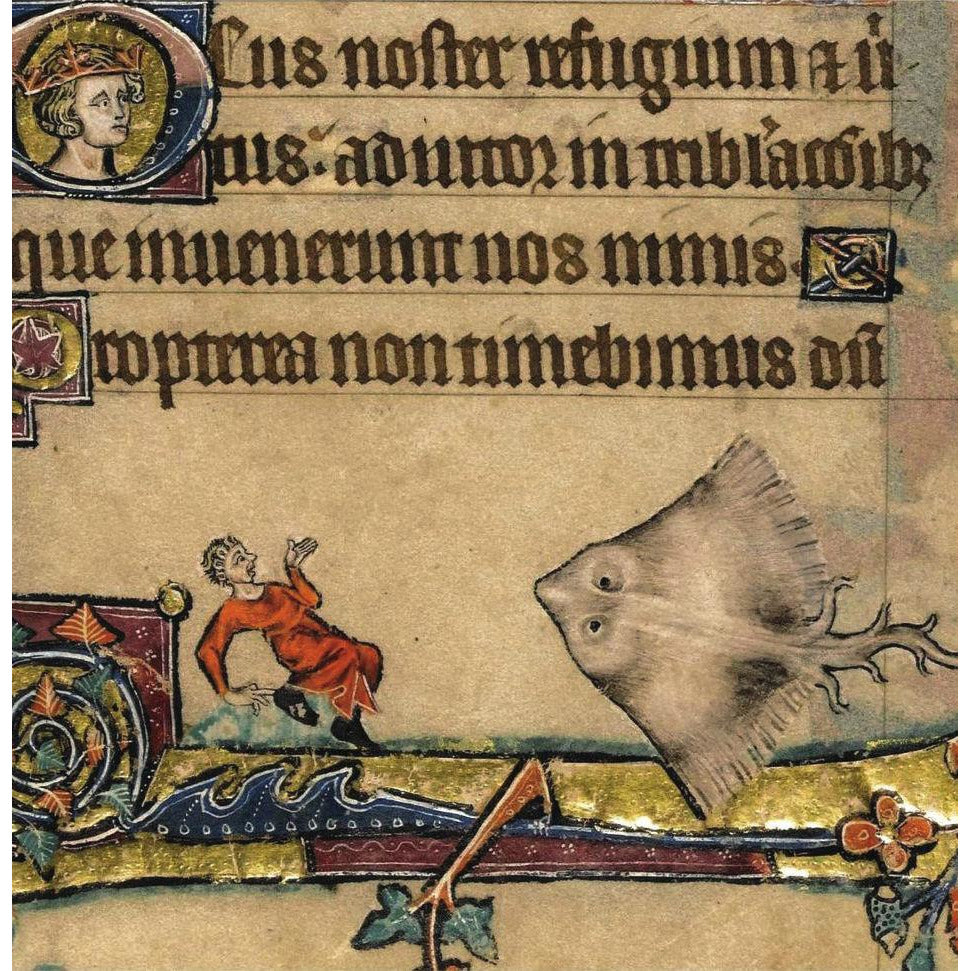 Deus noster refugium ⁊ uͥ
tus: adiutor in tribl'acōibꝫ
que inuenerunt nos nimis.
Propterea non timebimus dū